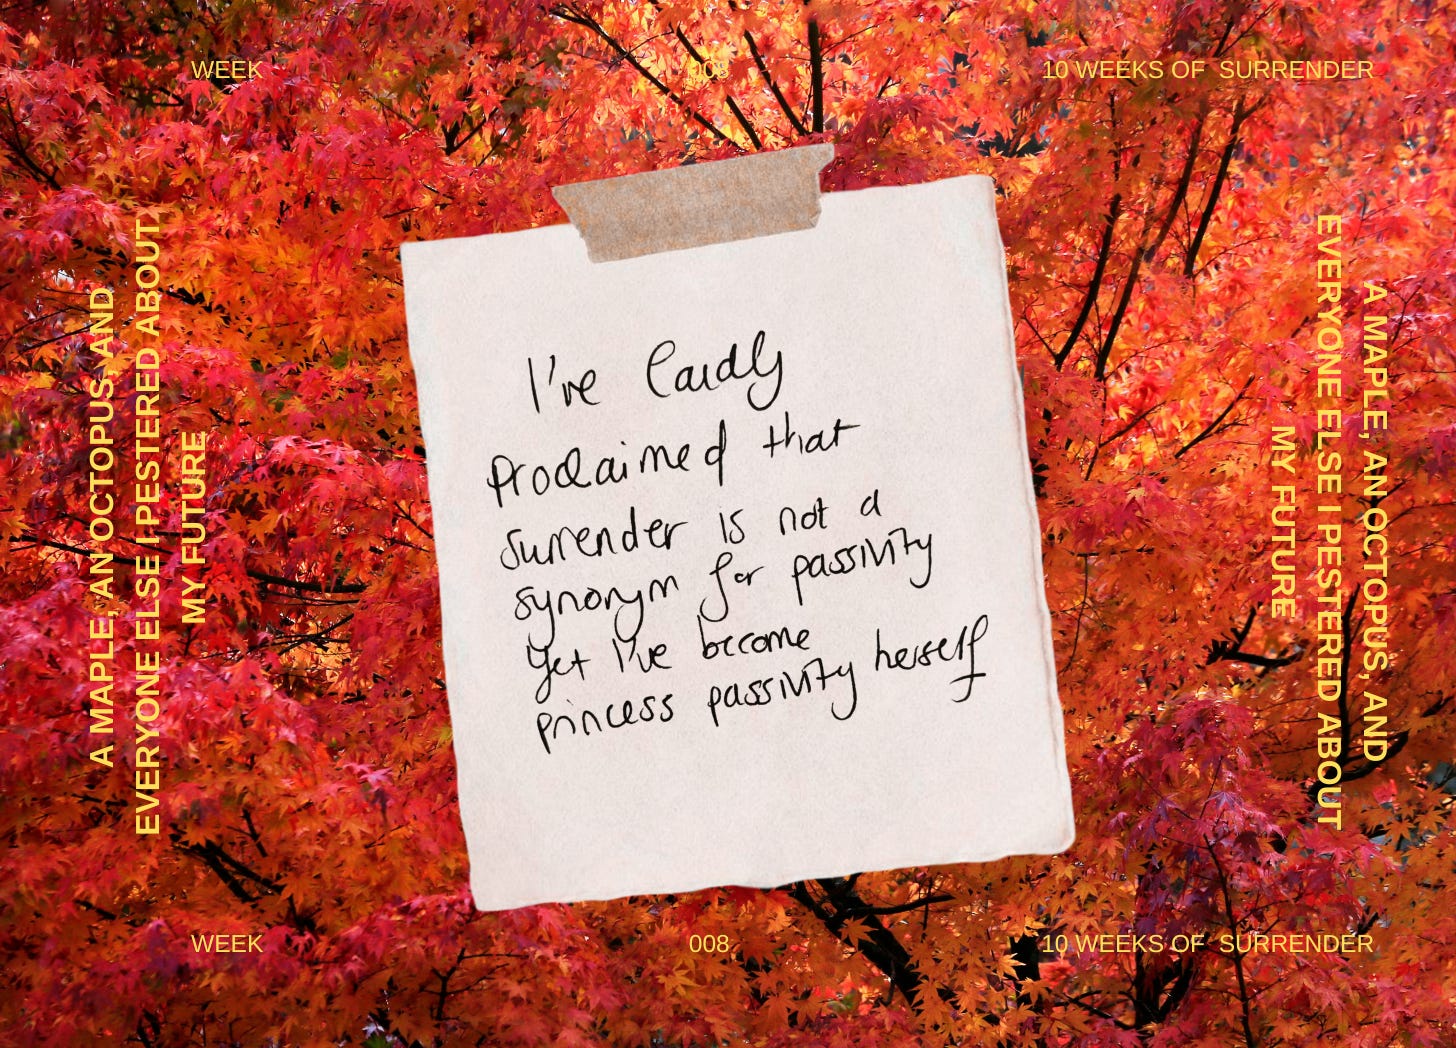 WEEK 008 10 WEEKS OF SURRENDER
A MAPLE, AN OCTOPUS, AND
EVERYONE ELSE I PESTERED ABOUT
MY FUTURE
I've loudly
proclaimed that
surrender is not a
synonym for passivity
yet I've become
princess passivity herself
A MAPLE, AN OCTOPUS, AND
EVERYONE ELSE I PESTERED ABOUT
MY FUTURE
WEEK 008 10 WEEKS OF SURRENDER